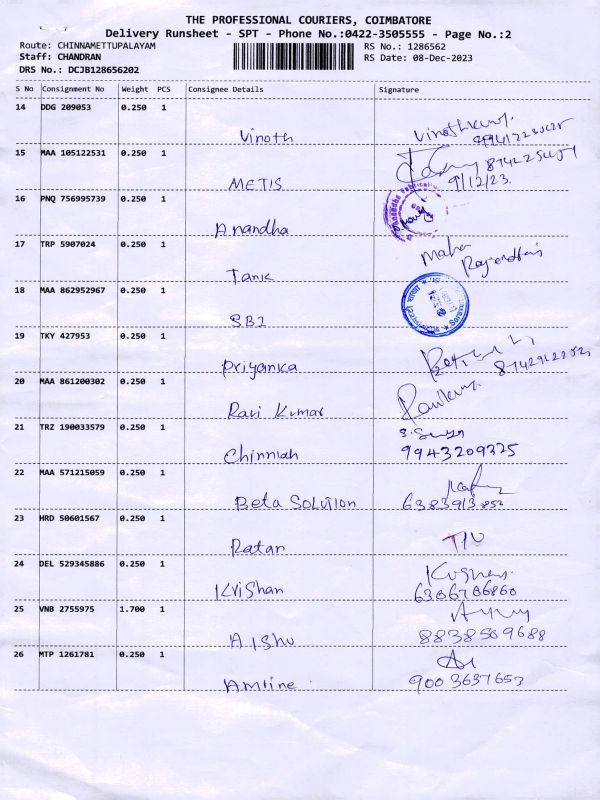 THE PROFESSIONAL COURIERS, COIMBATORE
Delivery Runsheet - SPT - Phone No.:0422-3505555 - Page No.:2
Route: CHINNAMETTUPALAYAM RS No.: 1286562
Staff: CHANDRAN RS Date: 08-Dec-2023
DRS No.: DCJB128656202
S No Consignment No Weight PCS Consignee Details Signature
14 DDG 209053 0.250 1
Vinoth
15 MAA 105122531 0.250 1
METIS 9/12/23
16 PNQ 756995739 0.250 1
Anandha
17 TRP 5907024 0.250 1 Maha
Tanic
18 MAA 862952967 0.250 1
SBI
19 TKY 427953 0.250 1
Priyanka
20 MAA 861200302 0.250 1
Ravi Kumar
21 TRZ 190033579 0.250 1
Chinniah 9943209325
22 MAA 571215059 0.250 1
Beta Solution 6383913852
23 HRD 50601567 0.250 1
Ratan
24 DEL 529345886 0.250 1
Krishan
25 VNB 2755975 1.700 1
Aishu 8838509688
26 MTP 1261781 0.250 1
Amline 9003637653